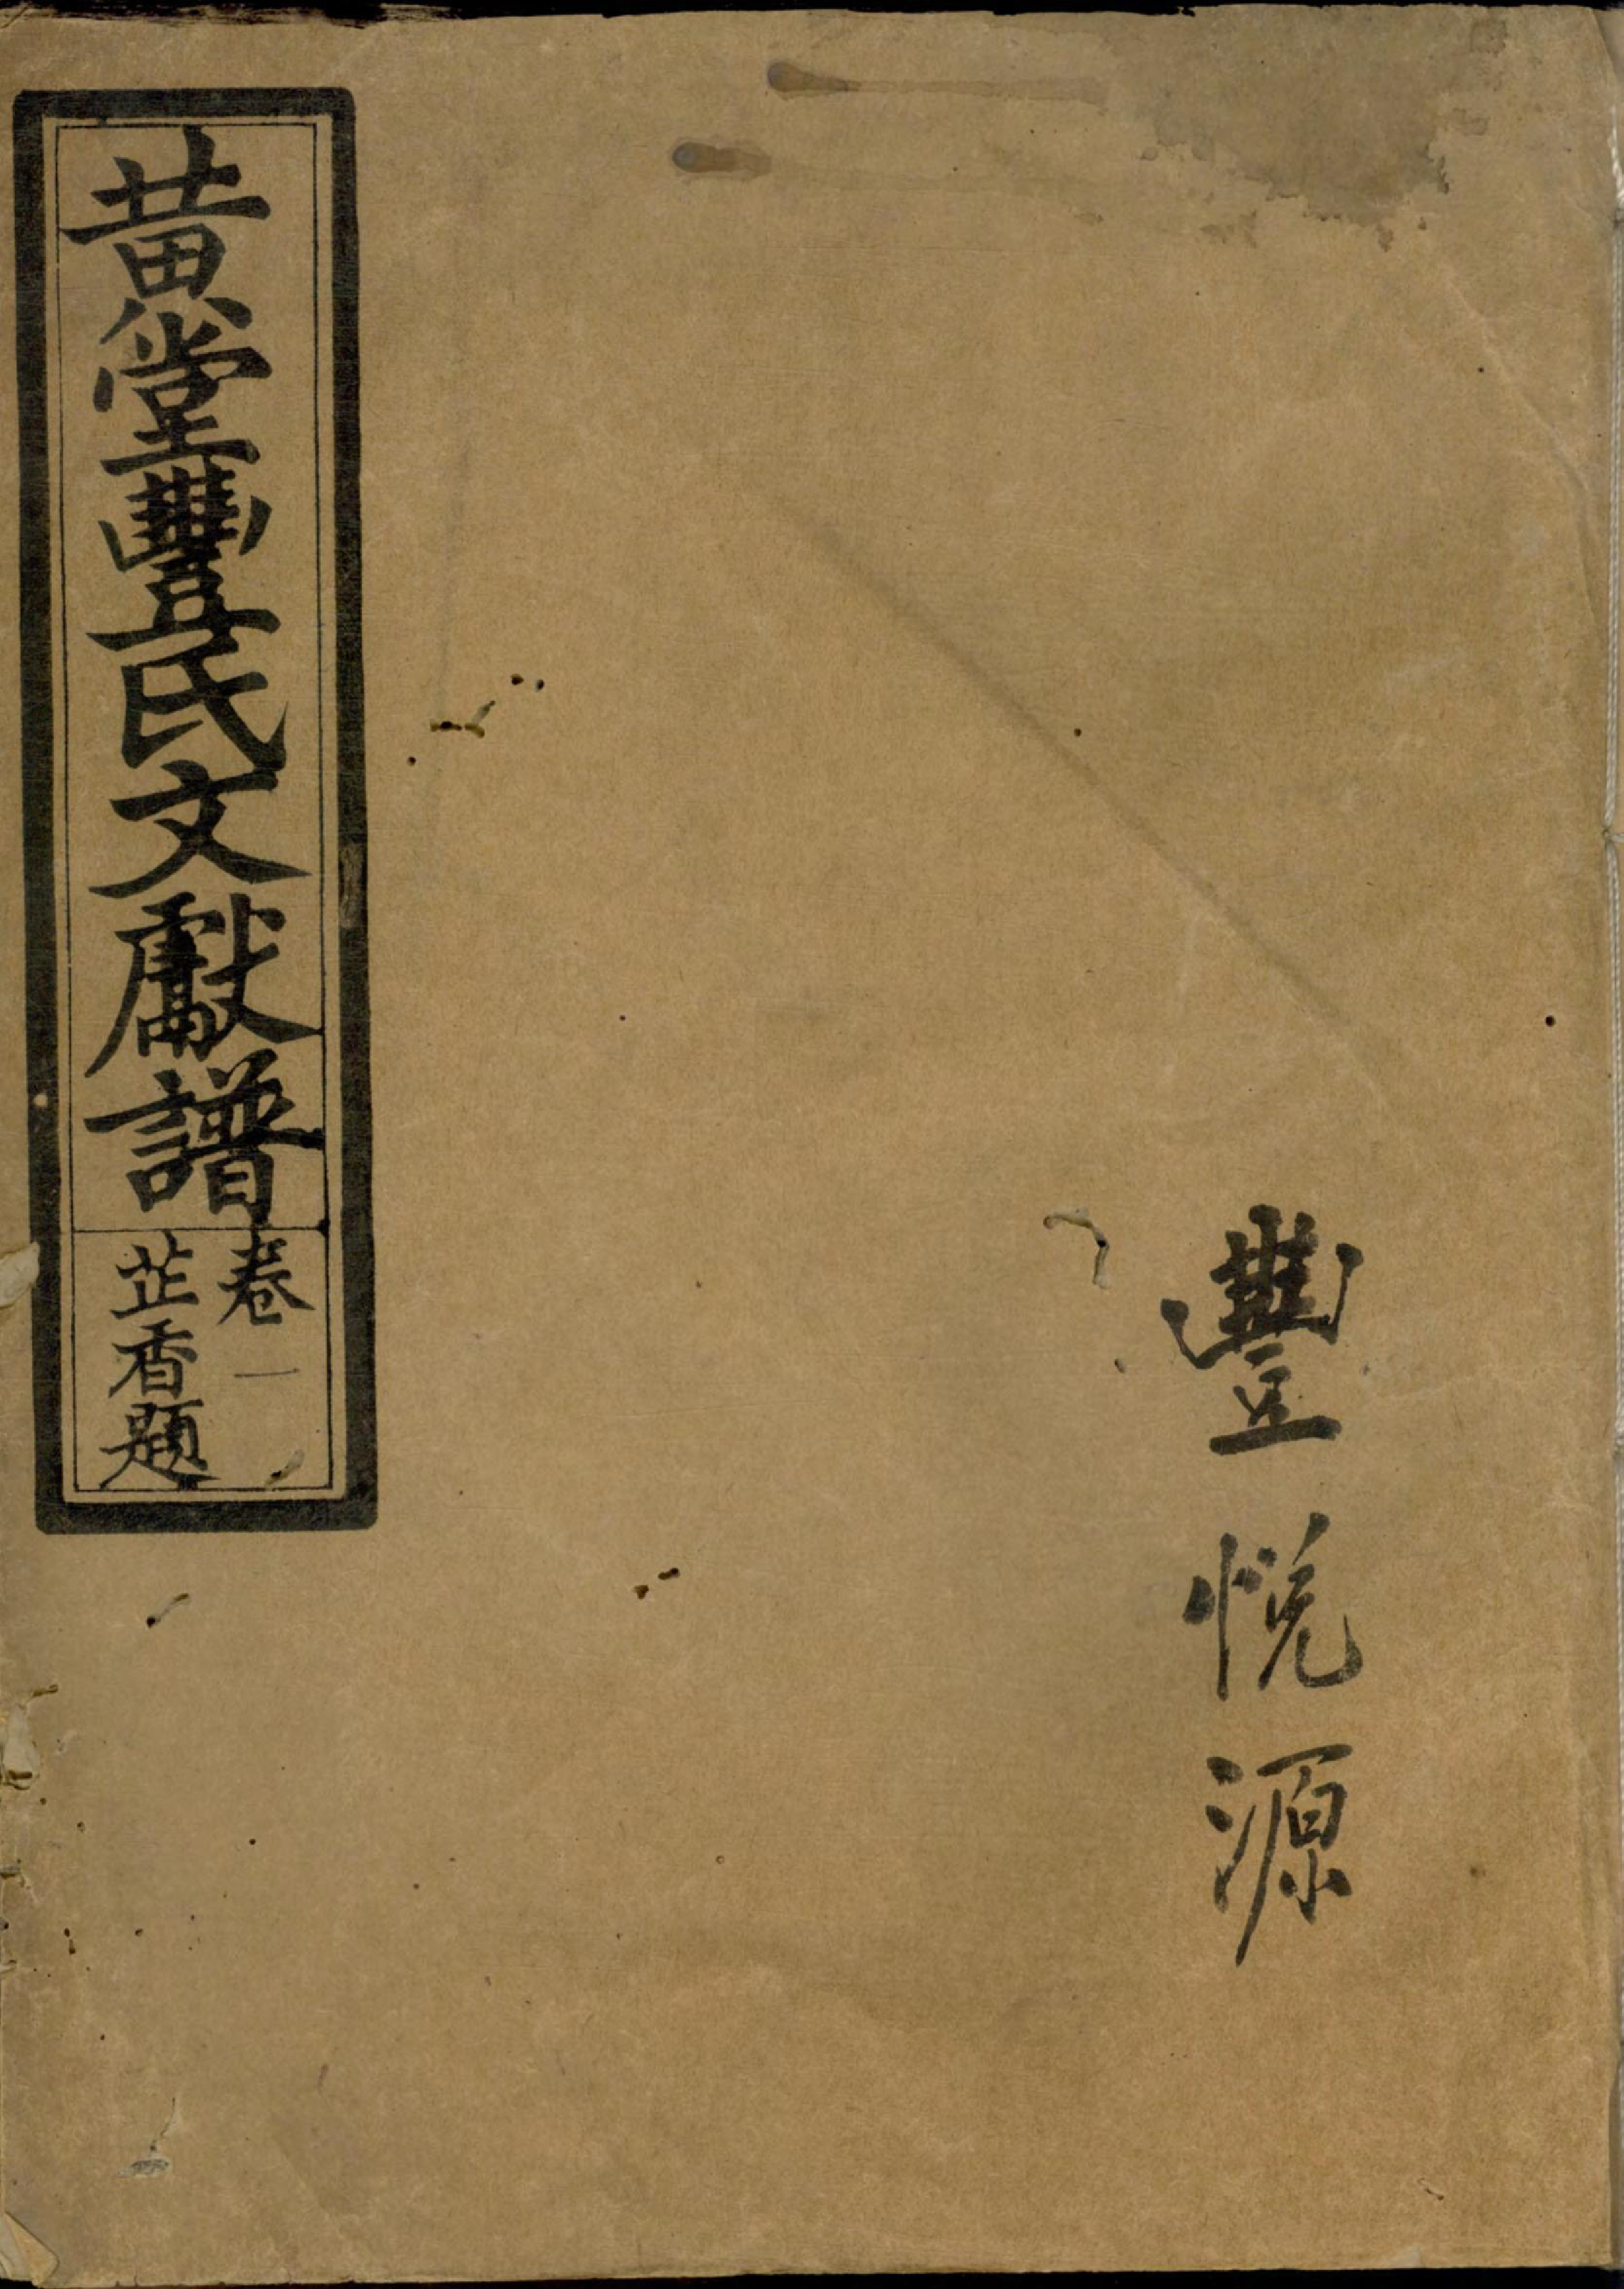 豐悦源
黄堂豐氏文獻譜
卷一
芷香題